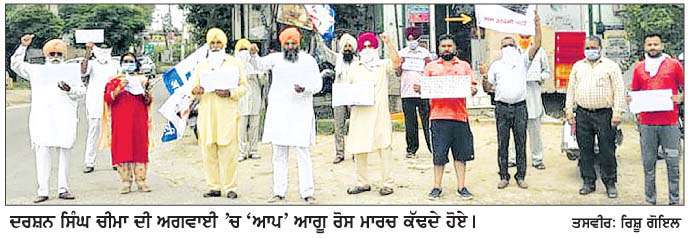 ਦਰਸ਼ਨ ਸਿੰਘ ਚੀਮਾ ਦੀ ਅਗਵਾਈ 'ਚ 'ਆਪ' ਆਗੂ ਰੋਸ ਮਾਰਚ ਕੱਢਦੇ ਹੋਏ। ਤਸਵੀਰ: ਰਿਸ਼ੂ ਗੋਇਲ